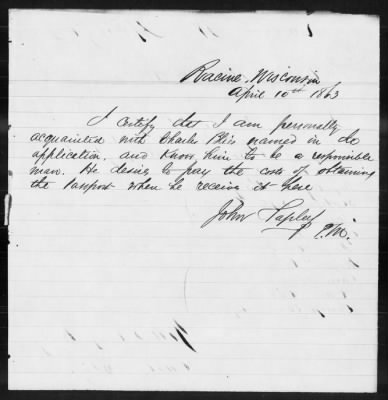 Racine, Wisconsin
April 10th 1863
I certify that I am personally
acquainted with Charles Bliss named in
application, and know him to be a responsible
man. He desires to pay the costs of obtaining
the Passport when he receives it here
John Tapley
P.M.